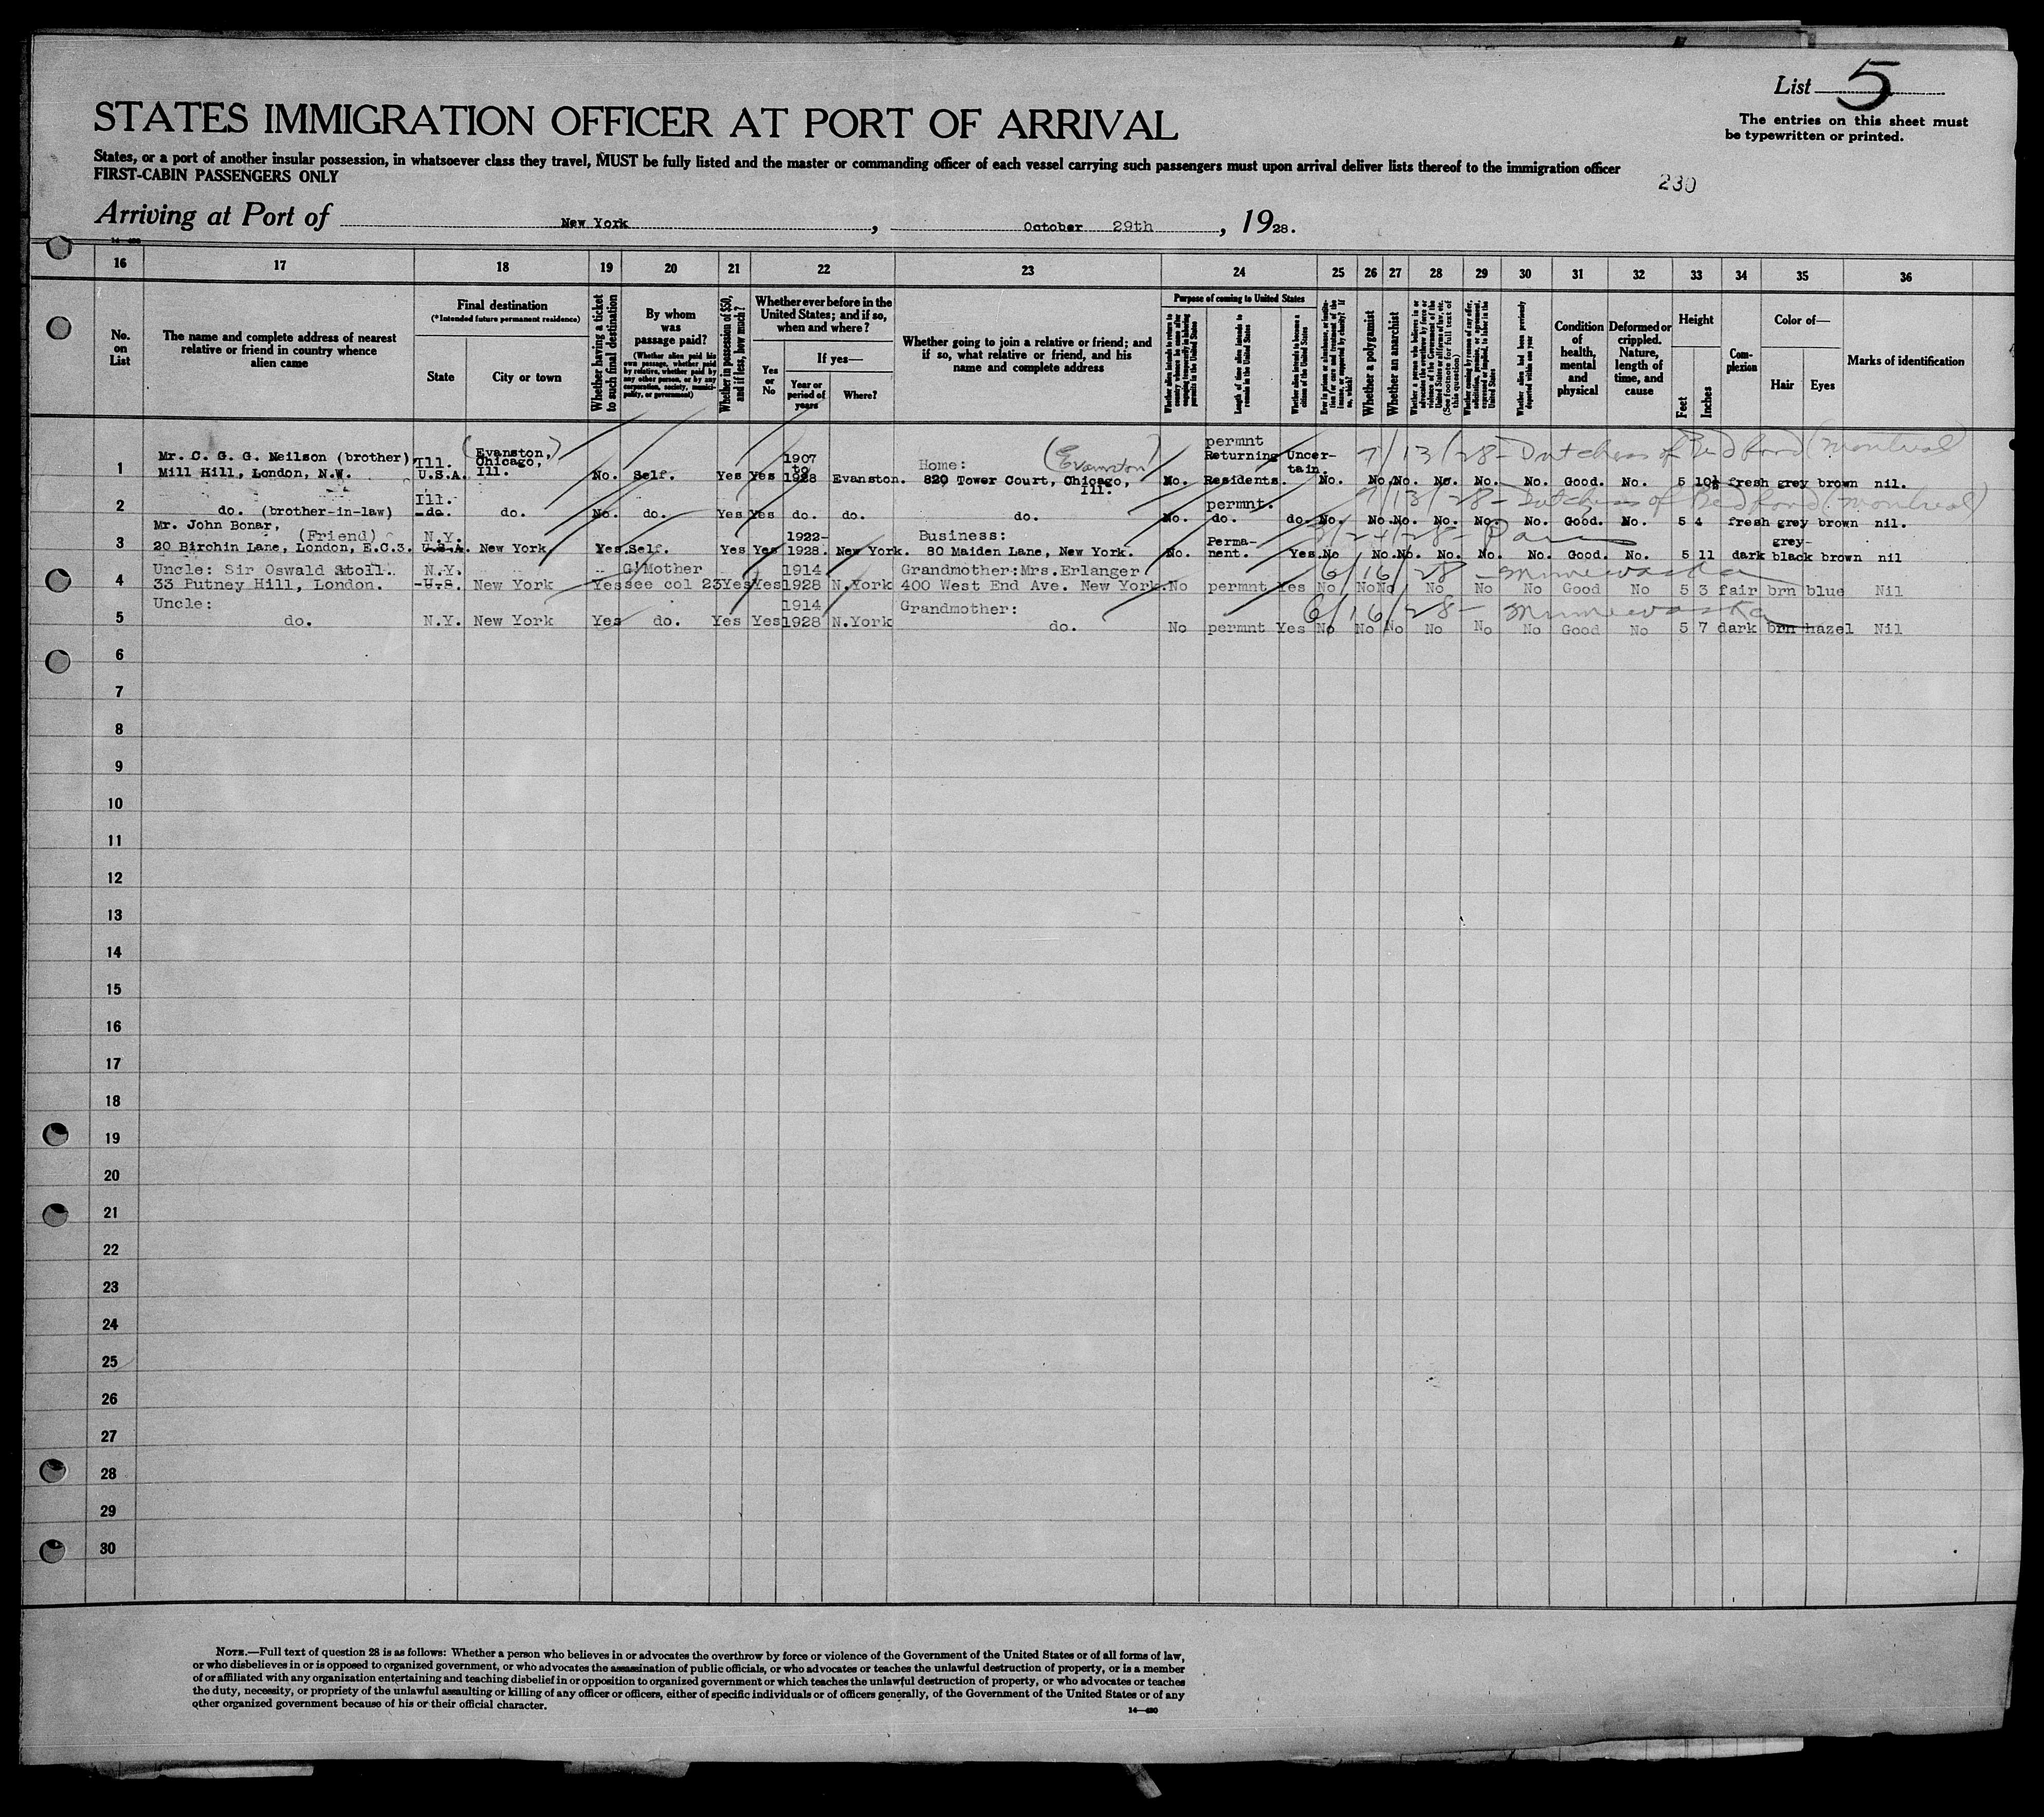 List 5
STATES IMMIGRATION OFFICER AT PORT OF ARRIVAL
The entries on this sheet must
be typewritten or printed.
States, or a port of another insular possession, in whatsoever class they travel, MUST be fully listed and the master or commanding officer of each vessel carrying such passengers must upon arrival deliver lists thereof to the immigration officer
FIRST-CABIN PASSENGERS ONLY
230
Arriving at Port of New York, October 29th, 1928.
14—480
16 17 18 19 20 21 22 23 24 25 26 27 28 29 30 31 32 33 34 35 36
No. on List
The name and complete address of nearest relative or friend in country whence alien came
Final destination
(*Intended future permanent residence)
State
City or town
Whether having a ticket to such final destination
By whom was passage paid?
(Whether alien paid his own passage, whether paid by relative, whether paid by any other person, or by any corporation, society, municipality, or government)
Whether in possession of $50, and if less, how much?
Whether ever before in the United States; and if so, when and where?
Yes or No
If yes—
Year or period of years
Where?
Whether going to join a relative or friend; and if so, what relative or friend, and his name and complete address
Purpose of coming to United States
Whether alien intends to return to country whence he came after engaging temporarily in laboring pursuits in the United States
Length of time alien intends to remain in the United States
Whether alien intends to become a citizen of the United States
Ever in prison or almshouse, or institution for care and treatment of the insane, or supported by charity? If so, which?
Whether a polygamist
Whether an anarchist
Whether a person who believes in or advocates the overthrow by force or violence of the Government of the United States or all forms of law, etc. (See footnote for full text of this question)
Whether coming by reason of any offer, solicitation, promise, or agreement, expressed or implied, to labor in the United States
Whether alien had been previously deported within one year
Condition of health, mental and physical
Deformed or crippled. Nature, length of time, and cause
Height
Feet
Inches
Complexion
Color of—
Hair
Eyes
Marks of identification
1 Mr. C. G. G. Neilson (brother) Ill. (Evanston,) 1907 (Evanston) permnt 7/13/28 – Dutchess of Bedford (Montreal)
Mill Hill, London, N.W. U.S.A. Chicago, Ill. No. Self. Yes Yes to 1928 Evanston. Home: 820 Tower Court, Chicago, Ill. No. Returning Residents. Uncertain. No. No. No. No. No. No. Good. No. 5 10½ fresh grey brown nil.
2 Ill. permnt. 7/13/28 – Dutchess of Bedford (Montreal)
do. (brother-in-law) do. do. No. do. Yes Yes do. do. do. No. do. do. No. No. No. No. No. No. Good. No. 5 4 fresh grey brown nil.
3 Mr. John Bonar, (Friend) N.Y. 1922- Business: Perma- 3/24/28 – Paris grey-
20 Birchin Lane, London, E.C.3. U.S.A. New York Yes Self. Yes Yes 1928. New York. 80 Maiden Lane, New York. No. nent. Yes No No. No. No. No. No. Good. No. 5 11 dark black brown nil
4 Uncle: Sir Oswald Stoll. N.Y. G/Mother 1914 Grandmother:Mrs.Erlanger 6/16/28 – Minnewaska
33 Putney Hill, London. U.S. New York Yes see col 23 Yes Yes 1928 N.York 400 West End Ave. New York. No permnt Yes No No No No No No Good No 5 3 fair brn blue Nil
5 Uncle: 1914 Grandmother: 6/16/28 – Minnewaska
do. N.Y. New York Yes do. Yes Yes 1928 N.York do. No permnt Yes No No No No No No Good No 5 7 dark brn hazel Nil
6
7
8
9
10
11
12
13
14
15
16
17
18
19
20
21
22
23
24
25
26
27
28
29
30
NOTE.—Full text of question 28 is as follows: Whether a person who believes in or advocates the overthrow by force or violence of the Government of the United States or of all forms of law,
or who disbelieves in or is opposed to organized government, or who advocates the assassination of public officials, or who advocates or teaches the unlawful destruction of property, or is a member
of or affiliated with any organization entertaining and teaching disbelief in or opposition to organized government or which teaches the unlawful destruction of property, or who advocates or teaches
the duty, necessity, or propriety of the unlawful assaulting or killing of any officer or officers, either of specific individuals or of officers generally, of the Government of the United States or of any
other organized government because of his or their official character.
14—480